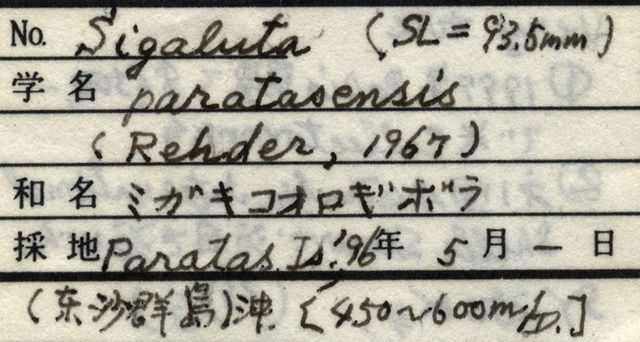 No. Sigaluta (SL=93.5mm)
学名 paratasensis
(Rehder, 1967)
和名 ミガキコオロギボラ
採地 Paratas Is. '96年 5月 — 日
(东沙群島)沖 [450~600m/D.]